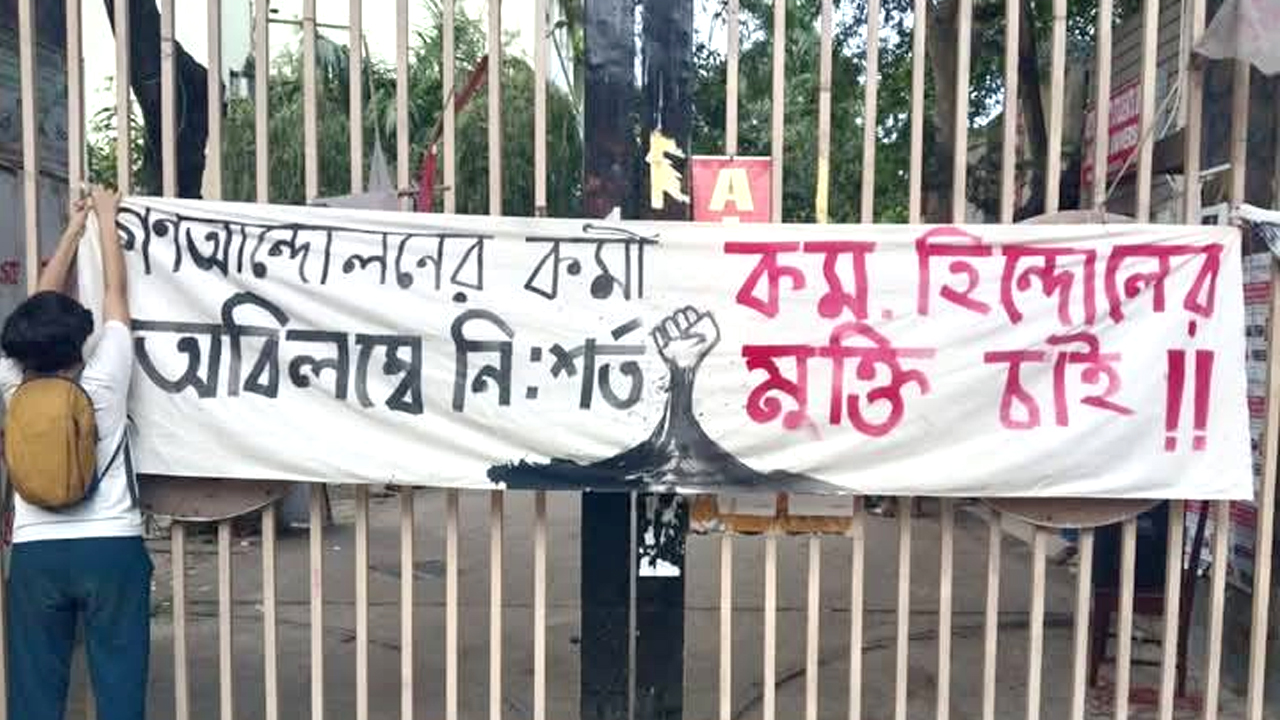 গণআন্দোলনের কর্মী
অবিলম্বে নি:শর্ত
কম. হিন্দোলের
মুক্তি চাই !!
A